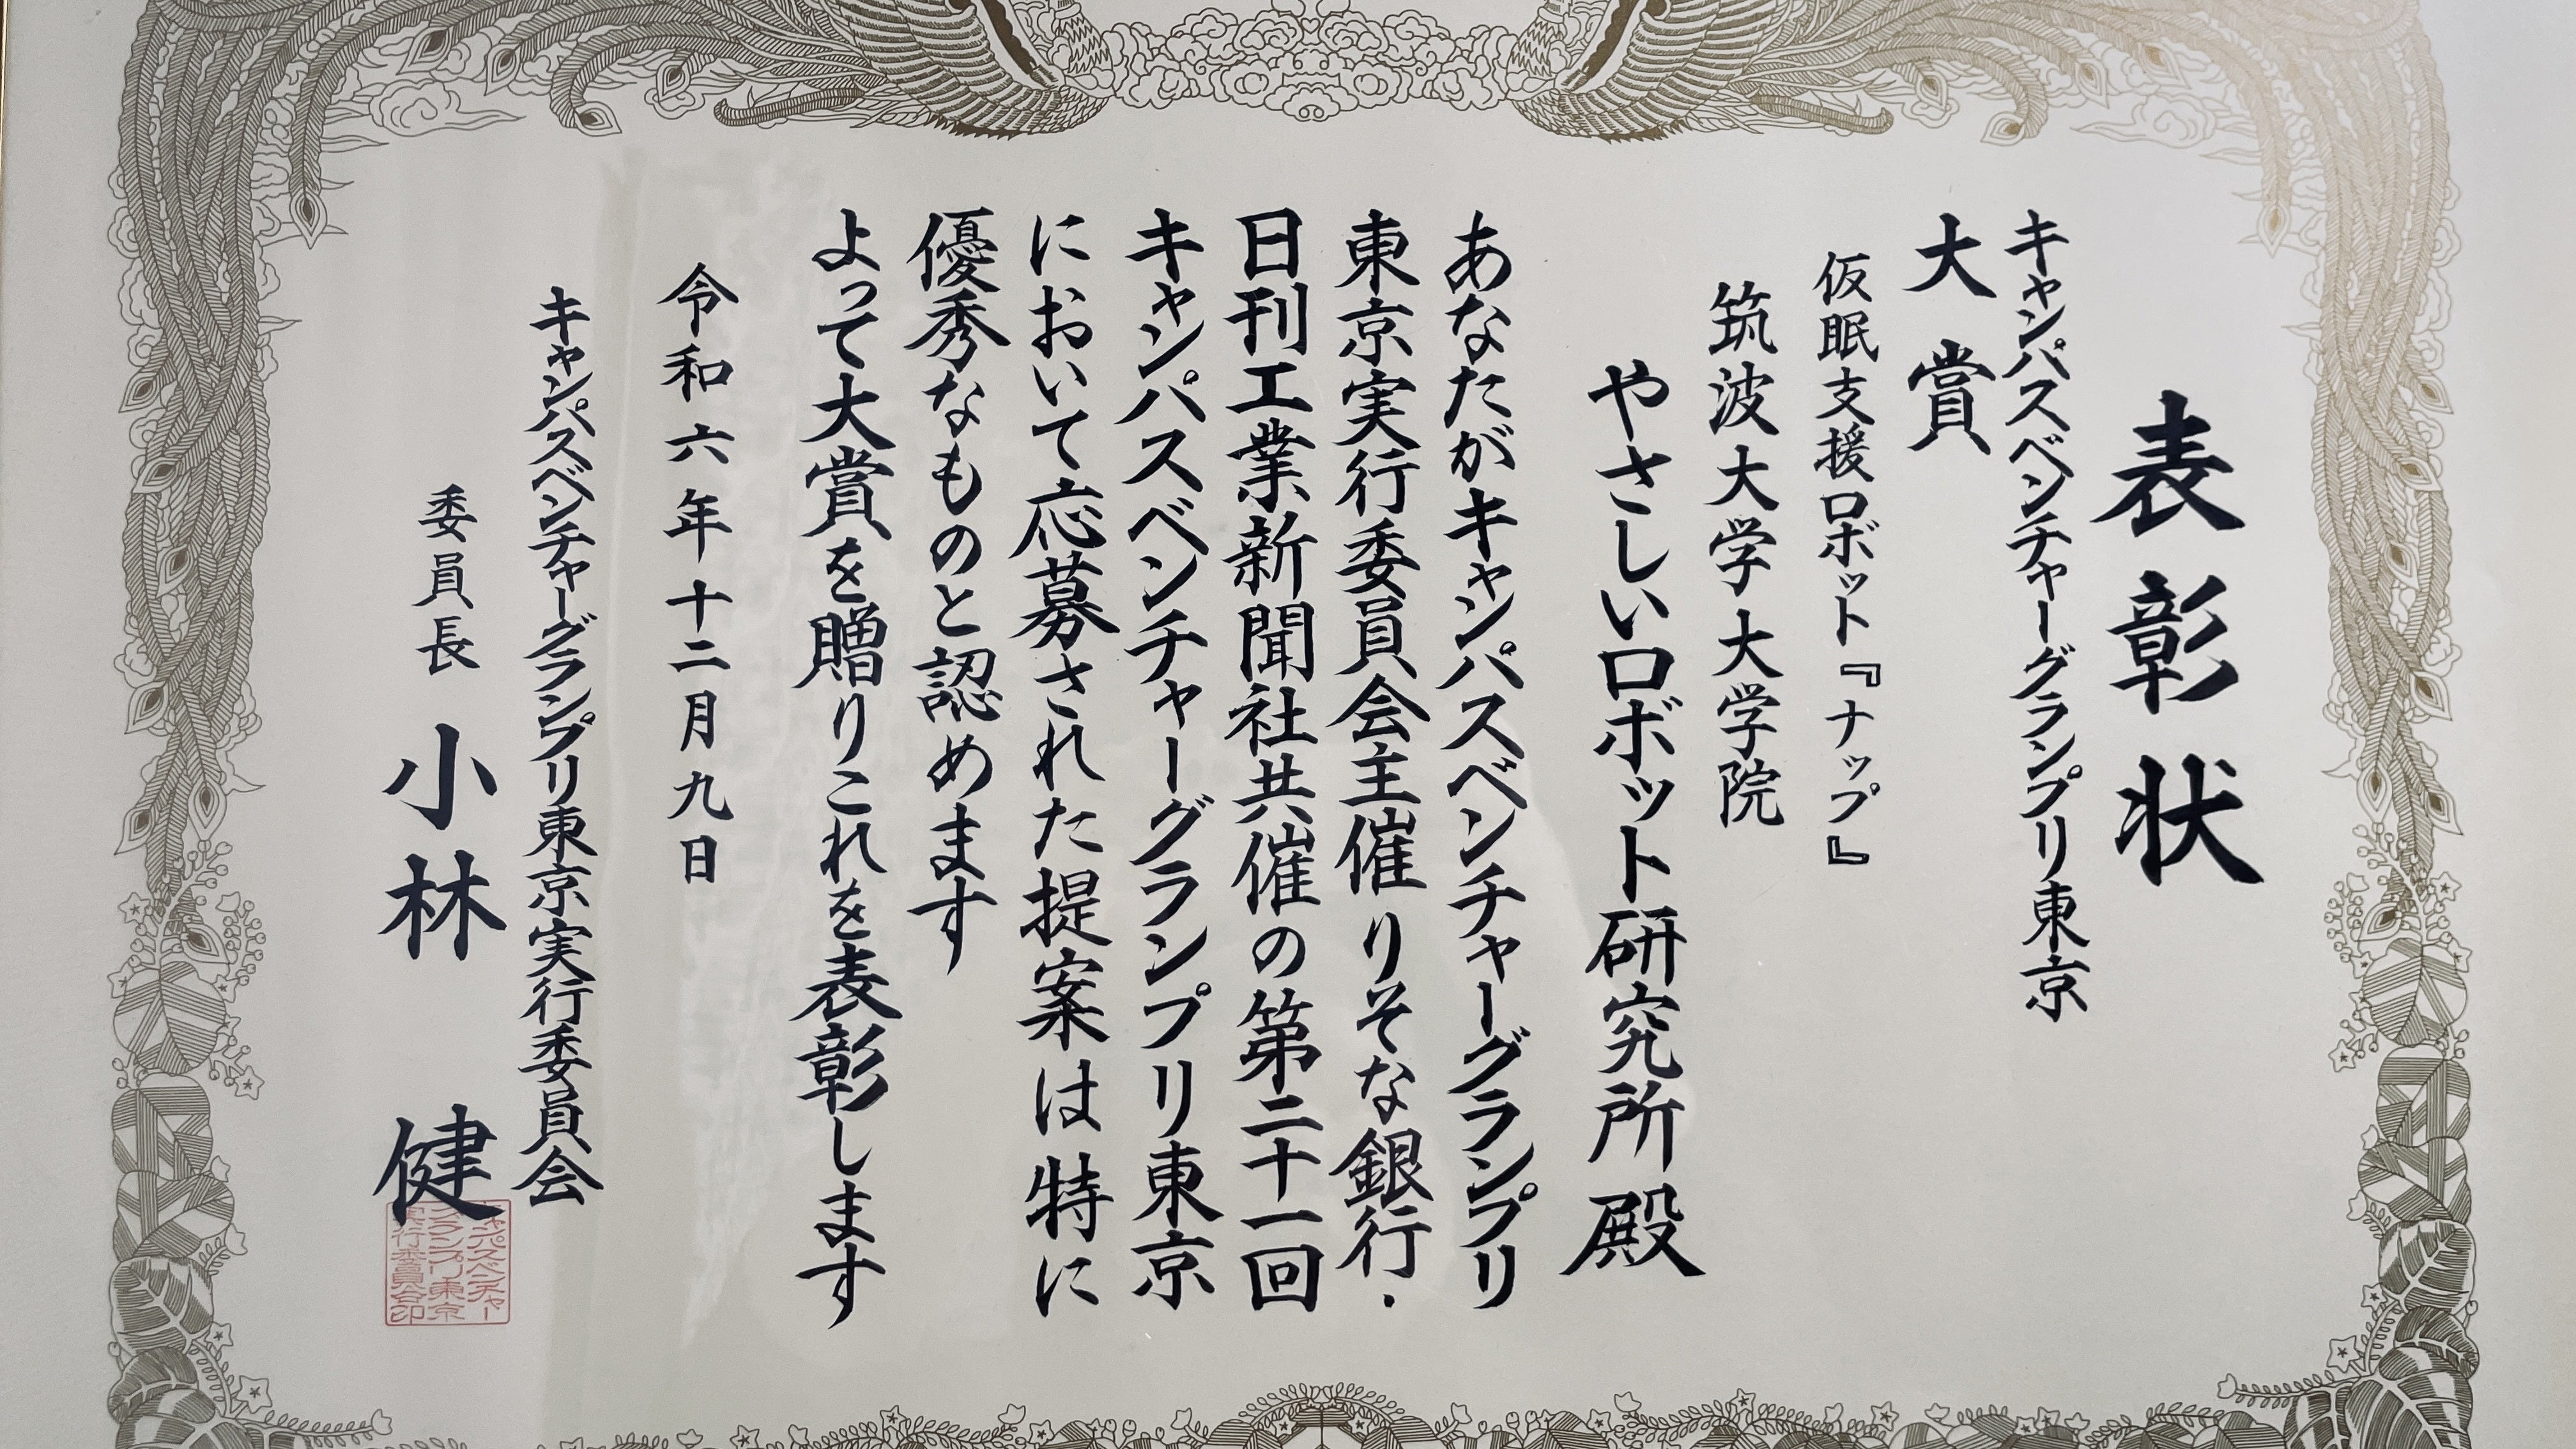 表彰状
キャンパスベンチャーグランプリ東京
大賞
仮眠支援ロボット『ナップ』
筑波大学大学院
やさしいロボット研究所 殿
あなたがキャンパスベンチャーグランプリ
東京実行委員会主催 りそな銀行・
日刊工業新聞社共催の第二十一回
キャンパスベンチャーグランプリ東京
において応募された提案は特に
優秀なものと認めます
よって大賞を贈りこれを表彰します
令和六年十二月九日
キャンパスベンチャーグランプリ東京実行委員会
委員長 小林 健
キャンパスベンチャー
グランプリ東京
実行委員会印